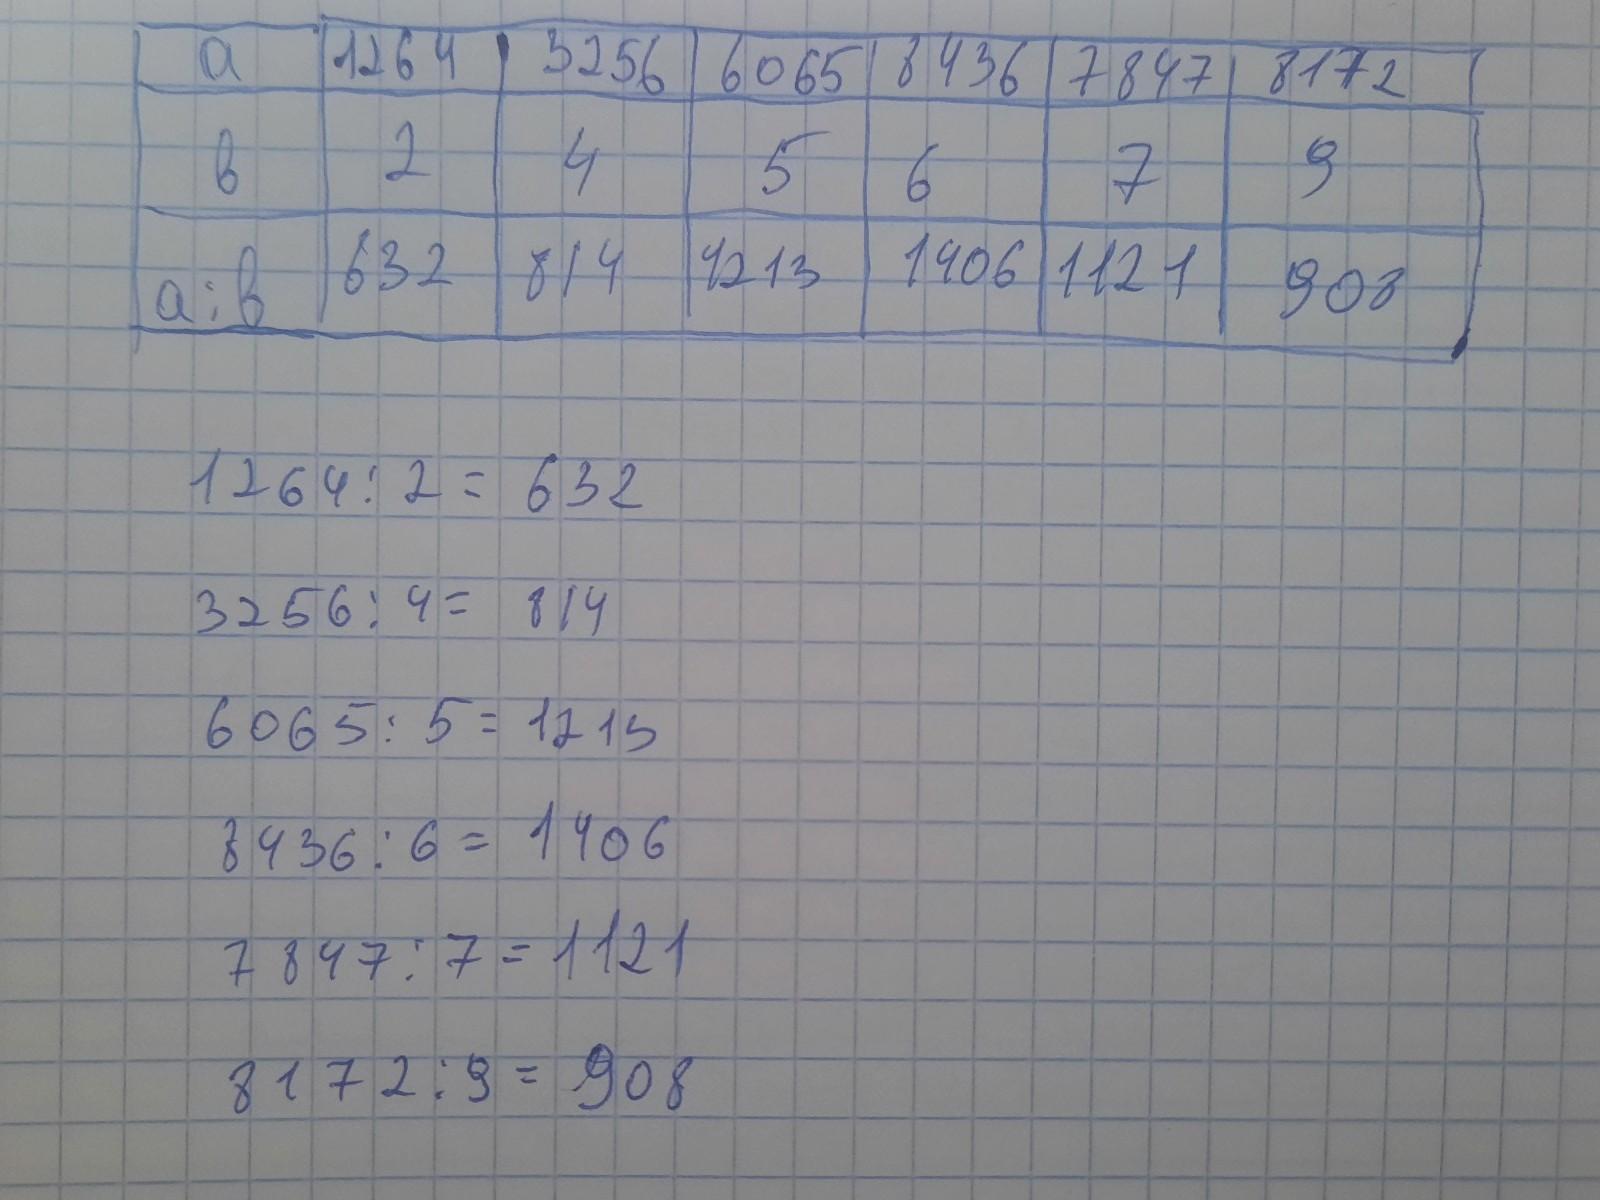 а 1264 3256 6065 8436 7847 8172
в 2 4 5 6 7 9
а:в 632 814 1213 1406 1121 908
1264:2= 632
3256:4= 814
6065:5=1213
8436:6= 1406
7847:7=1121
8172:9= 908